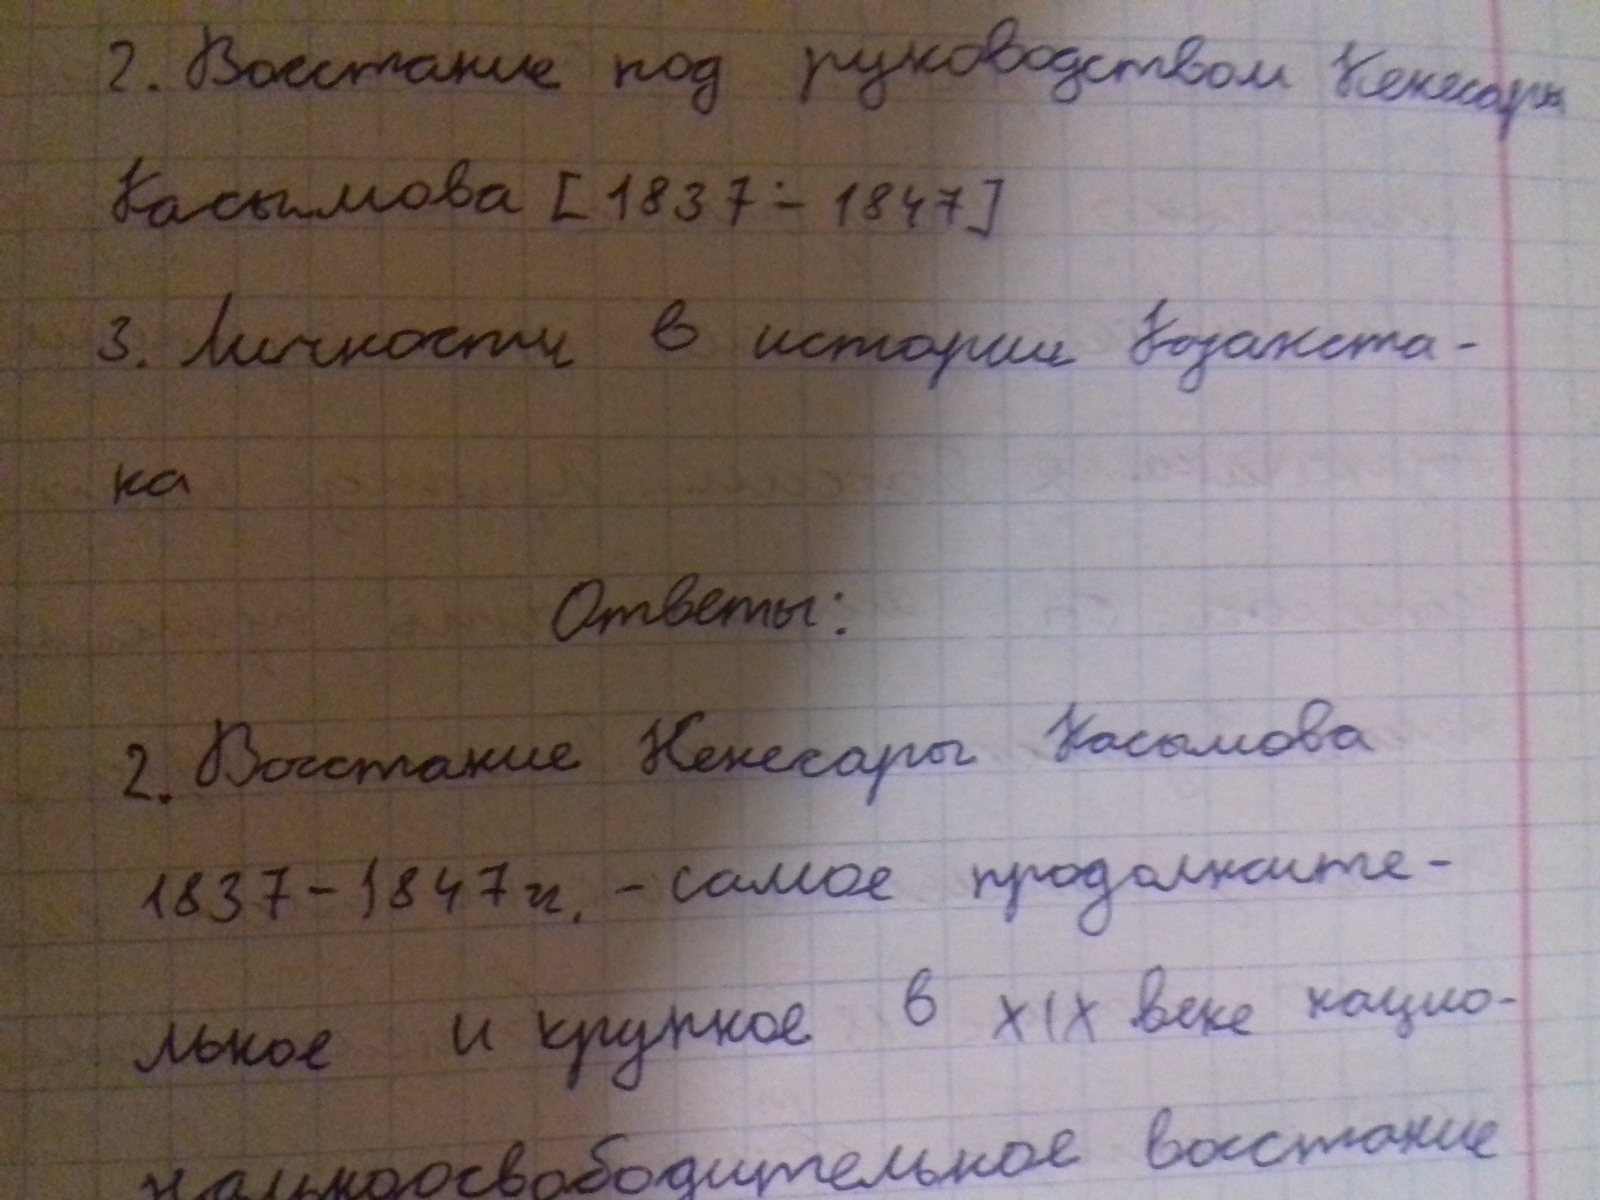 2. Восстание под руководством Кенесары
Касымова [1837 - 1847]
3. Личности в истории Казахста-
на
Ответы:
2. Восстание Кенесары Касымова
1837-1847 гг. - самое продолжите-
льное и крупное в XIX веке нацио-
нальноосвободительное восстание